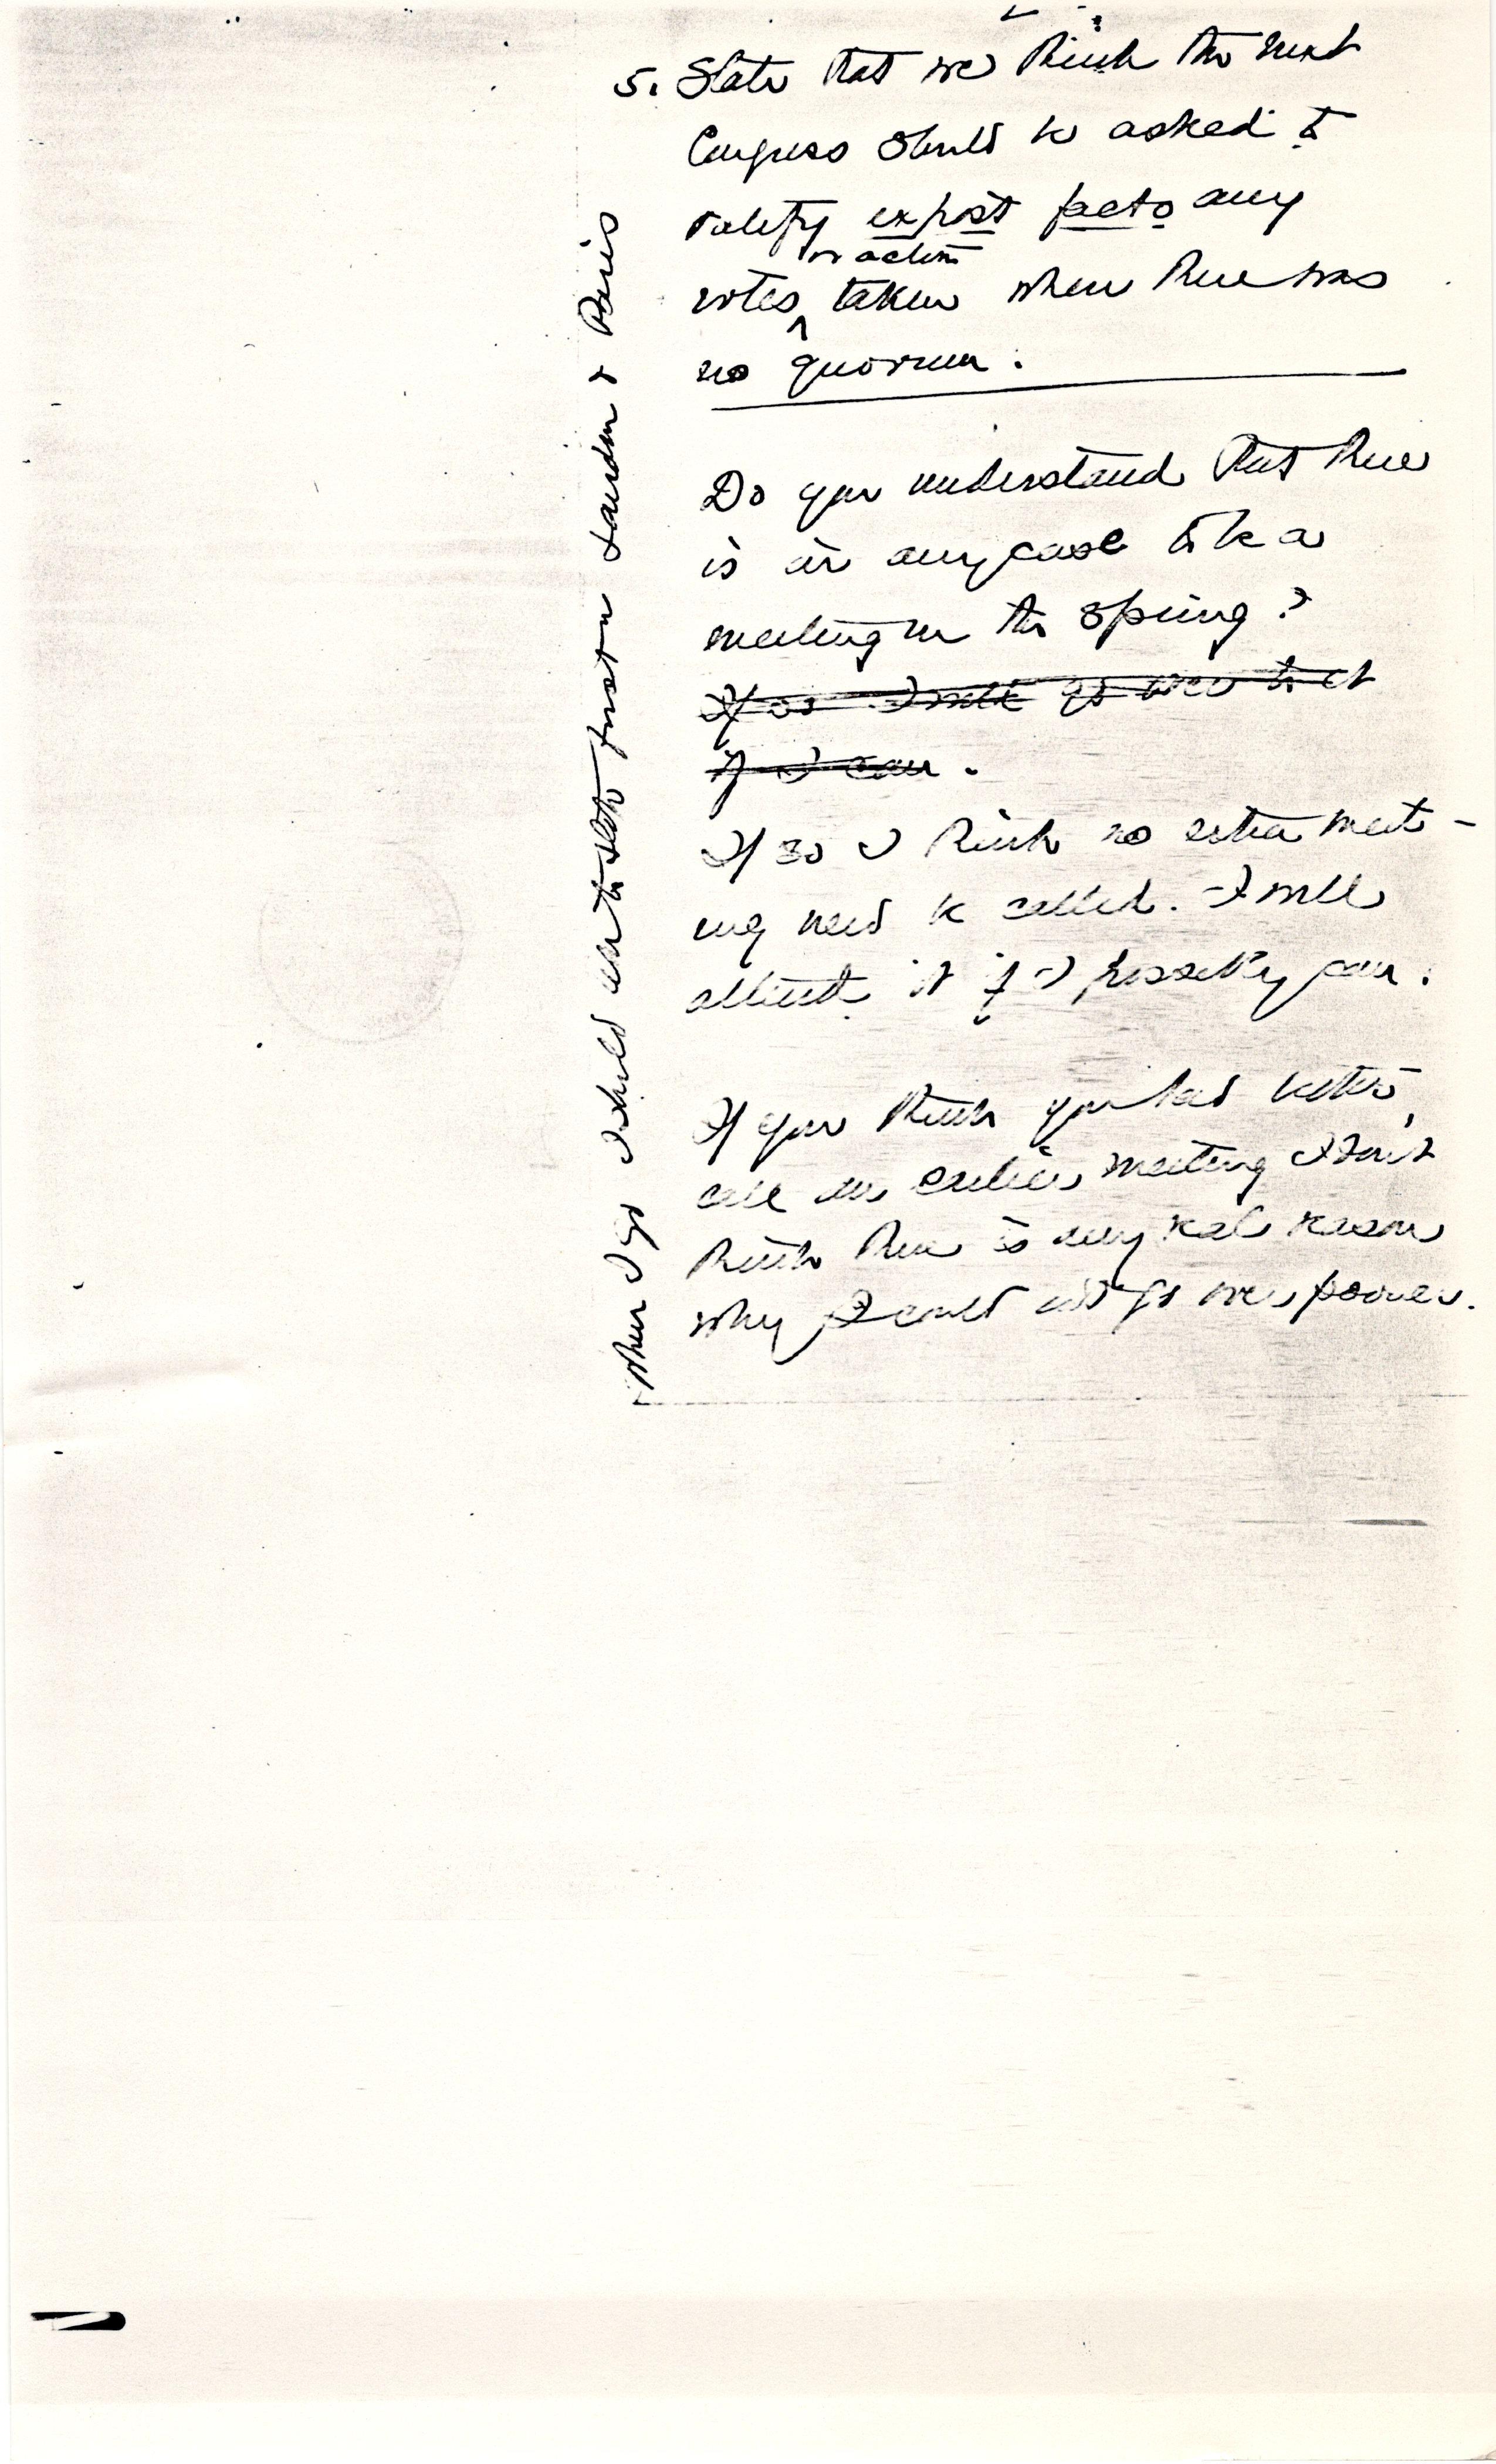 5. State that we think the next
Congress should be asked to
ratify ex post facto any
votes or action taken when there was
no quorum.
Do you understand that there
is in any case to be a
meeting in the spring?
If so I will go over to it
if I can.
If so I think no extra meet-
ing need be called. I will
attend it if I possibly can.
If you think you had better
call an earlier meeting I don't
think there is any real reason
why I could not go over sooner.
When I go I should want to see London & Paris